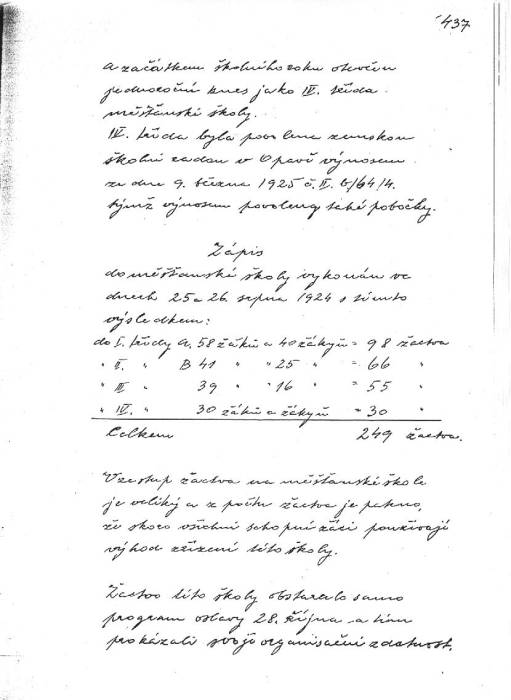 437
a začátkem školního roku otevřen
jednoroční kurs jako IV. třída
měšťanské školy.
IV. třída byla povolena zemskou
školní radou v Opavě výnosem
ze dne 9. března 1925 č. II. b/64/4.
týmž výnosem povoleny také pobočky.
Zápis
do měšťanské školy vykonán ve
dnech 25 a 26. srpna 1924 s tímto
výsledkem:
do I. třídy A. 58 žáků a 40 žákyň = 98 žactva
" II. " B 41 " " 25 " = 66 "
" III " 39 " " 16 " = 55 "
" IV. " 30 žáků a žákyň = 30 "
Celkem 249 žactva.
Vzestup žactva na měšťanské škole
je veliký a z počtu žactva je patrno,
že skoro všichni schopní žáci používají
výhod zřízení této školy.
Žactvo této školy obstaralo samo
program oslavy 28. října a tím
prokázali svoji organisační zdatnost.